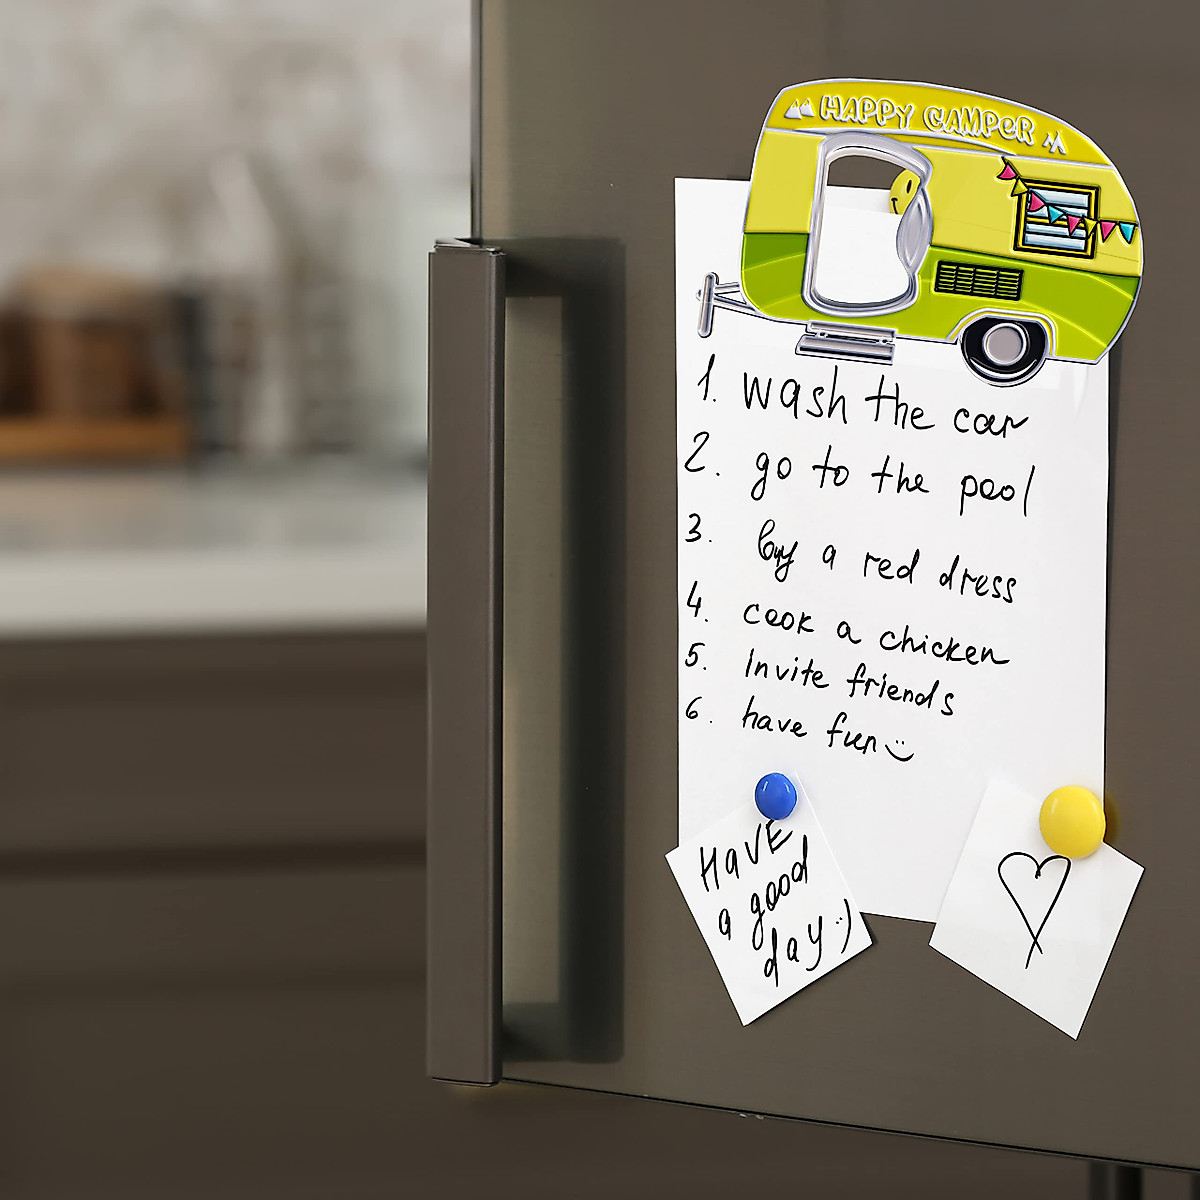 HAPPY CAMPER
1. wash the car
2. go to the pool
3. by a red dress
4. cook a chicken
5. Invite friends
6. have fun :)
HaVE
a good
day :)